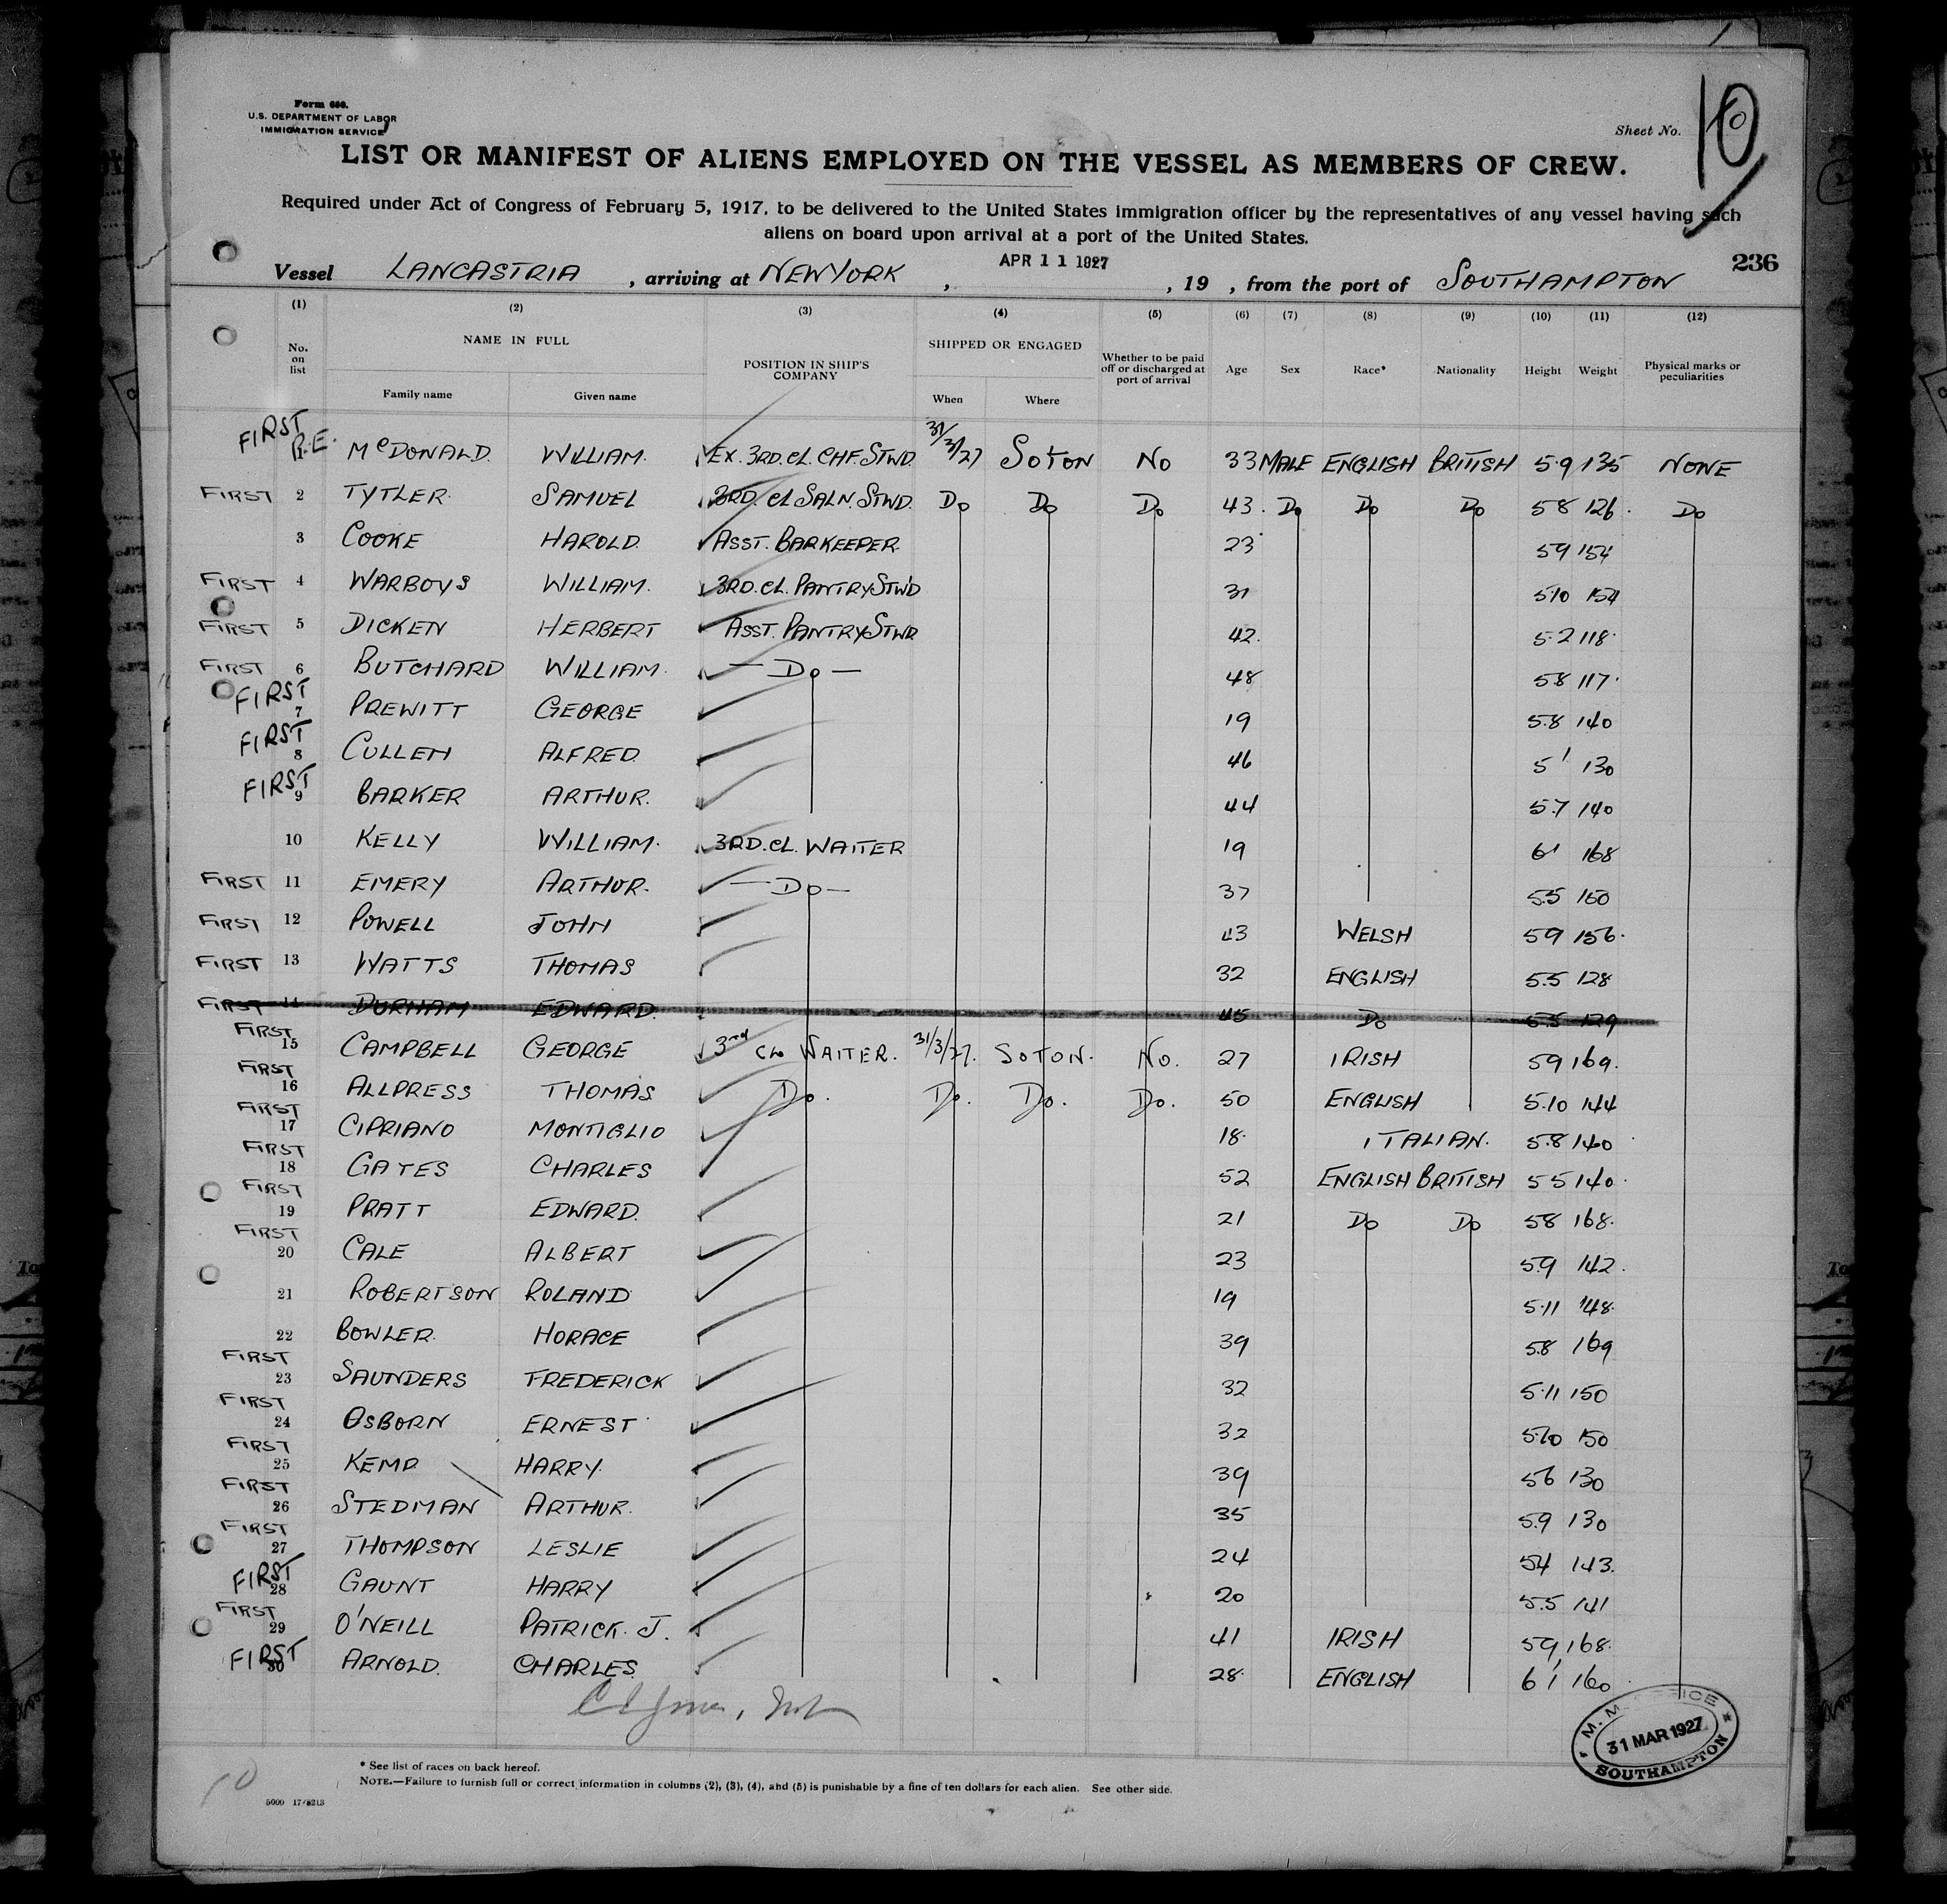 Form 680.
U.S. DEPARTMENT OF LABOR
IMMIGRATION SERVICE
Sheet No. 10
LIST OR MANIFEST OF ALIENS EMPLOYED ON THE VESSEL AS MEMBERS OF CREW.
Required under Act of Congress of February 5, 1917, to be delivered to the United States immigration officer by the representatives of any vessel having such
aliens on board upon arrival at a port of the United States.
Vessel LANCASTRIA, arriving at NEW YORK, APR 11 1927, 19 , from the port of SOUTHAMPTON
236
(1) (2) (3) (4) (5) (6) (7) (8) (9) (10) (11) (12)
No. on list NAME IN FULL POSITION IN SHIP'S COMPANY SHIPPED OR ENGAGED Whether to be paid off or discharged at port of arrival Age Sex Race* Nationality Height Weight Physical marks or peculiarities
Family name Given name When Where
FIRST R.E. 1 McDONALD. WILLIAM. EX. 3RD. CL. CHF. STWD. 31/3/27 SOTON NO 33 MALE ENGLISH BRITISH 5.9 135 NONE
FIRST 2 TYTLER. SAMUEL 3RD. CL SALN. STWD. Do Do Do 43. Do Do Do 58 126. Do
3 COOKE HAROLD. ASST. BARKEEPER. 23 59 154
FIRST 4 WARBOYS WILLIAM. 3RD. CL. PANTRY STWD 31 510 154
FIRST 5 DICKEN HERBERT ASST. PANTRY STWD 42. 5.2 118.
FIRST 6 BUTCHARD WILLIAM. — Do — 48 58 117.
FIRST 7 PREWITT GEORGE 19 5.8 140
FIRST 8 CULLEN ALFRED. 46 5' 130
FIRST 9 BARKER ARTHUR. 44 5.7 140
10 KELLY WILLIAM. 3RD. CL. WAITER 19 6' 168
FIRST 11 EMERY ARTHUR. — Do — 37 5.5 150
FIRST 12 POWELL JOHN 43 WELSH 59 156.
FIRST 13 WATTS THOMAS 32 ENGLISH 5.5 128
FIRST 14 DURHAM EDWARD. 45 Do 5.5 129
FIRST 15 CAMPBELL GEORGE 3rd Cls WAITER. 31/3/27. SOTON. NO. 27 IRISH 59 169.
FIRST 16 ALLPRESS THOMAS Do. Do. Do. Do. 50 ENGLISH 5.10 144
FIRST 17 CIPRIANO MONTIGLIO 18. ITALIAN. 5.8 140
FIRST 18 GATES CHARLES 52 ENGLISH BRITISH 55 140.
FIRST 19 PRATT EDWARD. 21 Do Do 58 168.
FIRST 20 CALE ALBERT 23 5.9 142.
21 ROBERTSON ROLAND 19 5.11 148.
22 BOWLER. HORACE 39 5.8 169
FIRST 23 SAUNDERS FREDERICK 32 5.11 150
FIRST 24 OSBORN ERNEST 32 5.10 150
FIRST 25 KEMP HARRY. 39 56 130
FIRST 26 STEDMAN ARTHUR. 35 5.9 130
FIRST 27 THOMPSON LESLIE 24 54 143.
FIRST 28 GAUNT HARRY 20 5.5 141
FIRST 29 O'NEILL PATRICK. J. 41 IRISH 59 168.
FIRST 30 ARNOLD. CHARLES. 28. ENGLISH 6'1 160
M. M. OFFICE
31 MAR 1927
SOUTHAMPTON
* See list of races on back hereof.
NOTE.—Failure to furnish full or correct information in columns (2), (3), (4), and (5) is punishable by a fine of ten dollars for each alien. See other side.
10
5000 17/8213